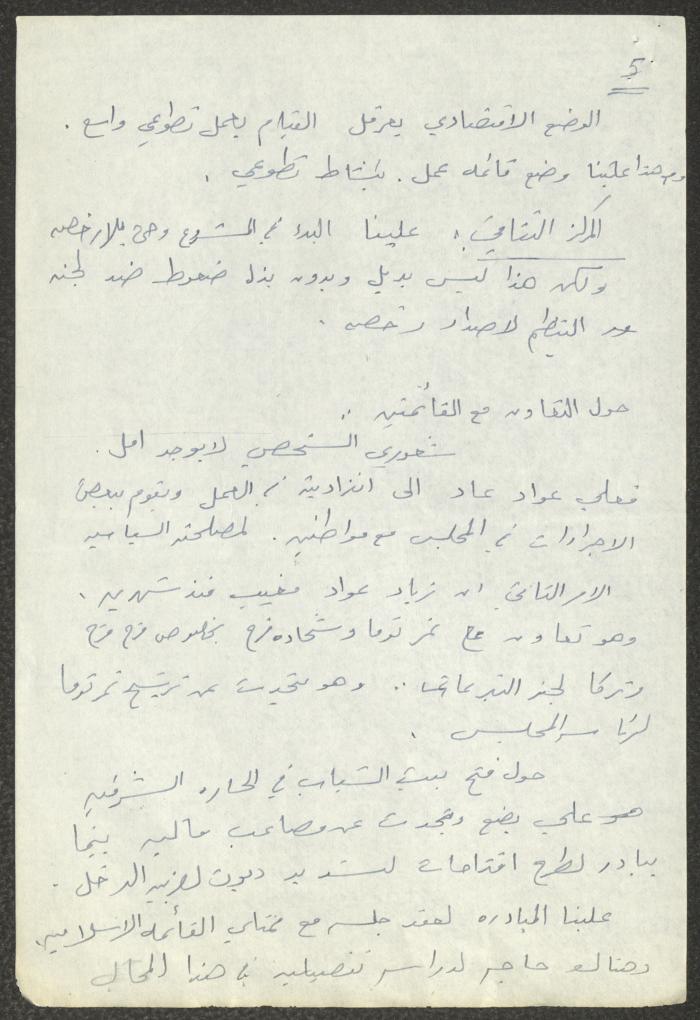 5
الوضع الاقتصادي يعرقل القيام بعمل تطوعي واسع .
ومع هذا علينا وضع قائمة عمل . بنشاط تطوعي .
المركز الثقافي : علينا البدء في المشروع وحتى بلا رخصه
ولكن هذا ليس بديل وبدون بذل ضغوط ضد لجنة
التنظيم لاصدار رخصه .
حول التعاون مع القائمتين :
شعوري الشخصي لا يوجد امل .
فعلي عواد عاد الى انفرادية في العمل ويقوم ببعض
الاجراءات في المجلس مع مواطنين . لمصلحته السياسيه
الامر الثاني ان زياد عواد مغيب منذ شهرين .
وهو تعاون مع نمر توما وشحاده فرح بخصوص فرح فرح
وتركا لجنة التبرعات .. وهو يتحدث عن ترشيح نمر توما
لرئاسة المجلس .
حول فتح بيت الشباب في الحاره الشرقيه
علي يضع ويتحدث عن مصاعب ماليه بينما
يبادر لطرح اقتراحات لتسديد ديون لضريبة الدخل .
علينا المبادره لعقد جلسه مع ممثلي القائمه الاسلاميه
وهنالك حاجه لدراسه تفصيليه في هذا المجال